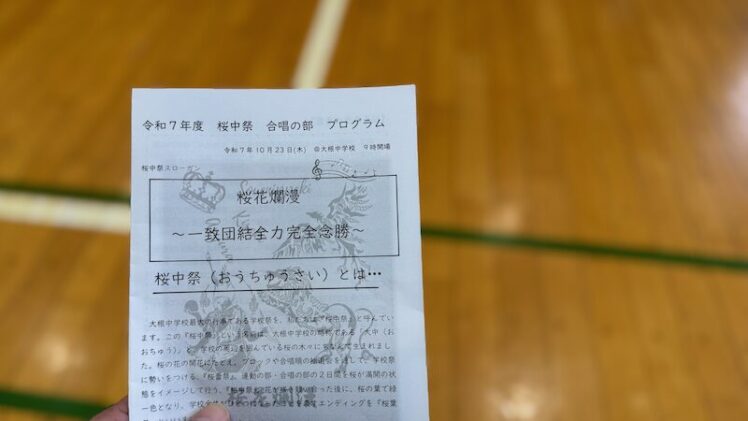 令和7年度 桜中祭 合唱の部 プログラム
令和7年10月23日(木) @大根中学校 9時開場
桜中祭スローガン
桜花爛漫
～一致団結全力完全念勝～
桜中祭（おうちゅうさい）とは…
大根中学校最大の行事である学校祭を、私たちは『桜中祭』と呼んでい
ます。この『桜中祭』という名前は、大根中学校の略称である「大中（お
おちゅう）」と、学校の周辺を囲んでいる桜の木々に ちなんで生まれまし
た。桜の花の開花にたとえ、ブロックや合唱の 通して、学校祭
に勢いをつける、『桜蕾祭』、運動の部・合唱の部の2日間を桜が満開の状
態をイメージして行う、『桜中祭』、花が咲き誇 った後に、桜の葉で緑
一色となり、学校全体が エンディングを『桜葉
桜花爛漫